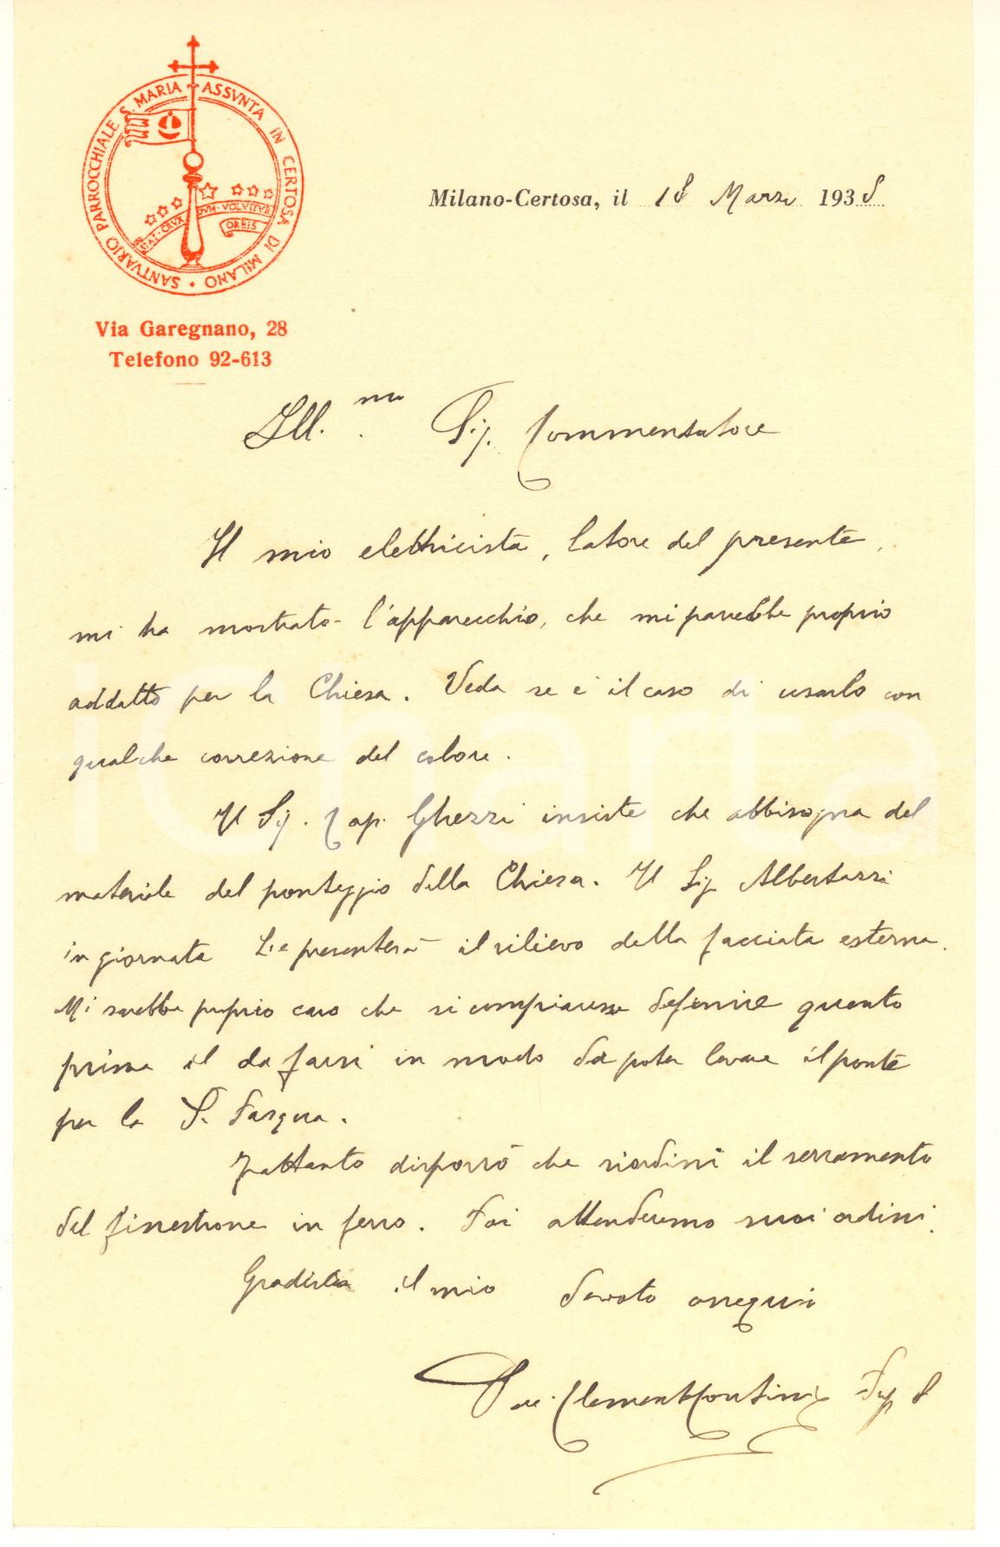 SANTVARIO PARROCCHIALE S. MARIA ASSVNTA IN CERTOSA DI MILANO
STAT · CRVX DVM · VOLVITVR
ORBIS
Via Garegnano, 28
Telefono 92-613
Milano-Certosa, il 18 Marzo 1938
Ill.mo Sig. Commendatore
Il mio elettricista, latore del presente,
mi ha mostrato l'apparecchio, che mi parrebbe proprio
addatto per la Chiesa. Veda se è il caso di usarlo con
qualche correzione del colore.
Il Sig. Cap. Ghezzi insiste che abbisogna del
materiale del ponteggio della Chiesa. Il Sig. Albertazzi
in giornata Le presenterà il rilievo della facciata esterna.
Mi sarebbe proprio caro che si compiacesse definire quanto
prima il da farsi in modo da poter levare il ponte
per la S. Pasqua.
Frattanto disporrò che riordini il serramento
del finestrone in ferro. Poi attenderemo suoi ordini.
Gradisca il mio devoto ossequio